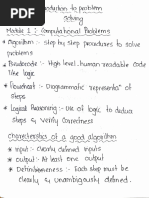 roduction to problem
Solving
Module 1 : Computational Problems
Algorithm :- Step by step procedures to solve
problems
Pseudocode :- High level, human readable code
like logic
Flowchart :- Diagrammatic representation of
steps
Logical Reasoning :- Use of logic to deduce
steps & verify correctness
Characteristics of a good algorithm
Input :- clearly defined inputs
Output :- At least one output
Definiteness :- Each step must be
clearly & unambiguously defined.